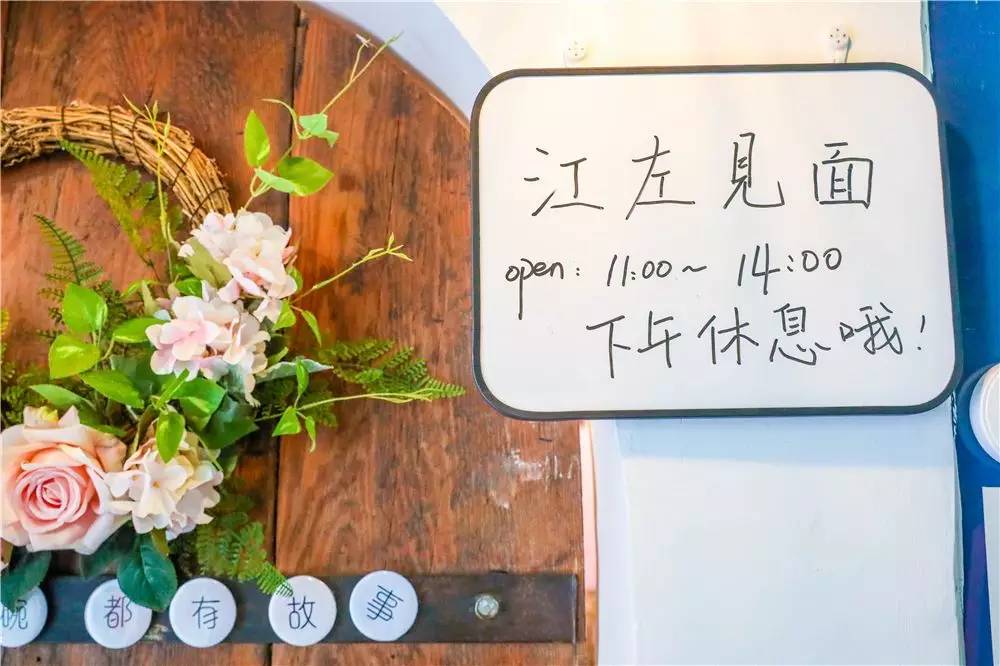 江左見面
open: 11:00~ 14:00
下午休息哦!
碗都有故事